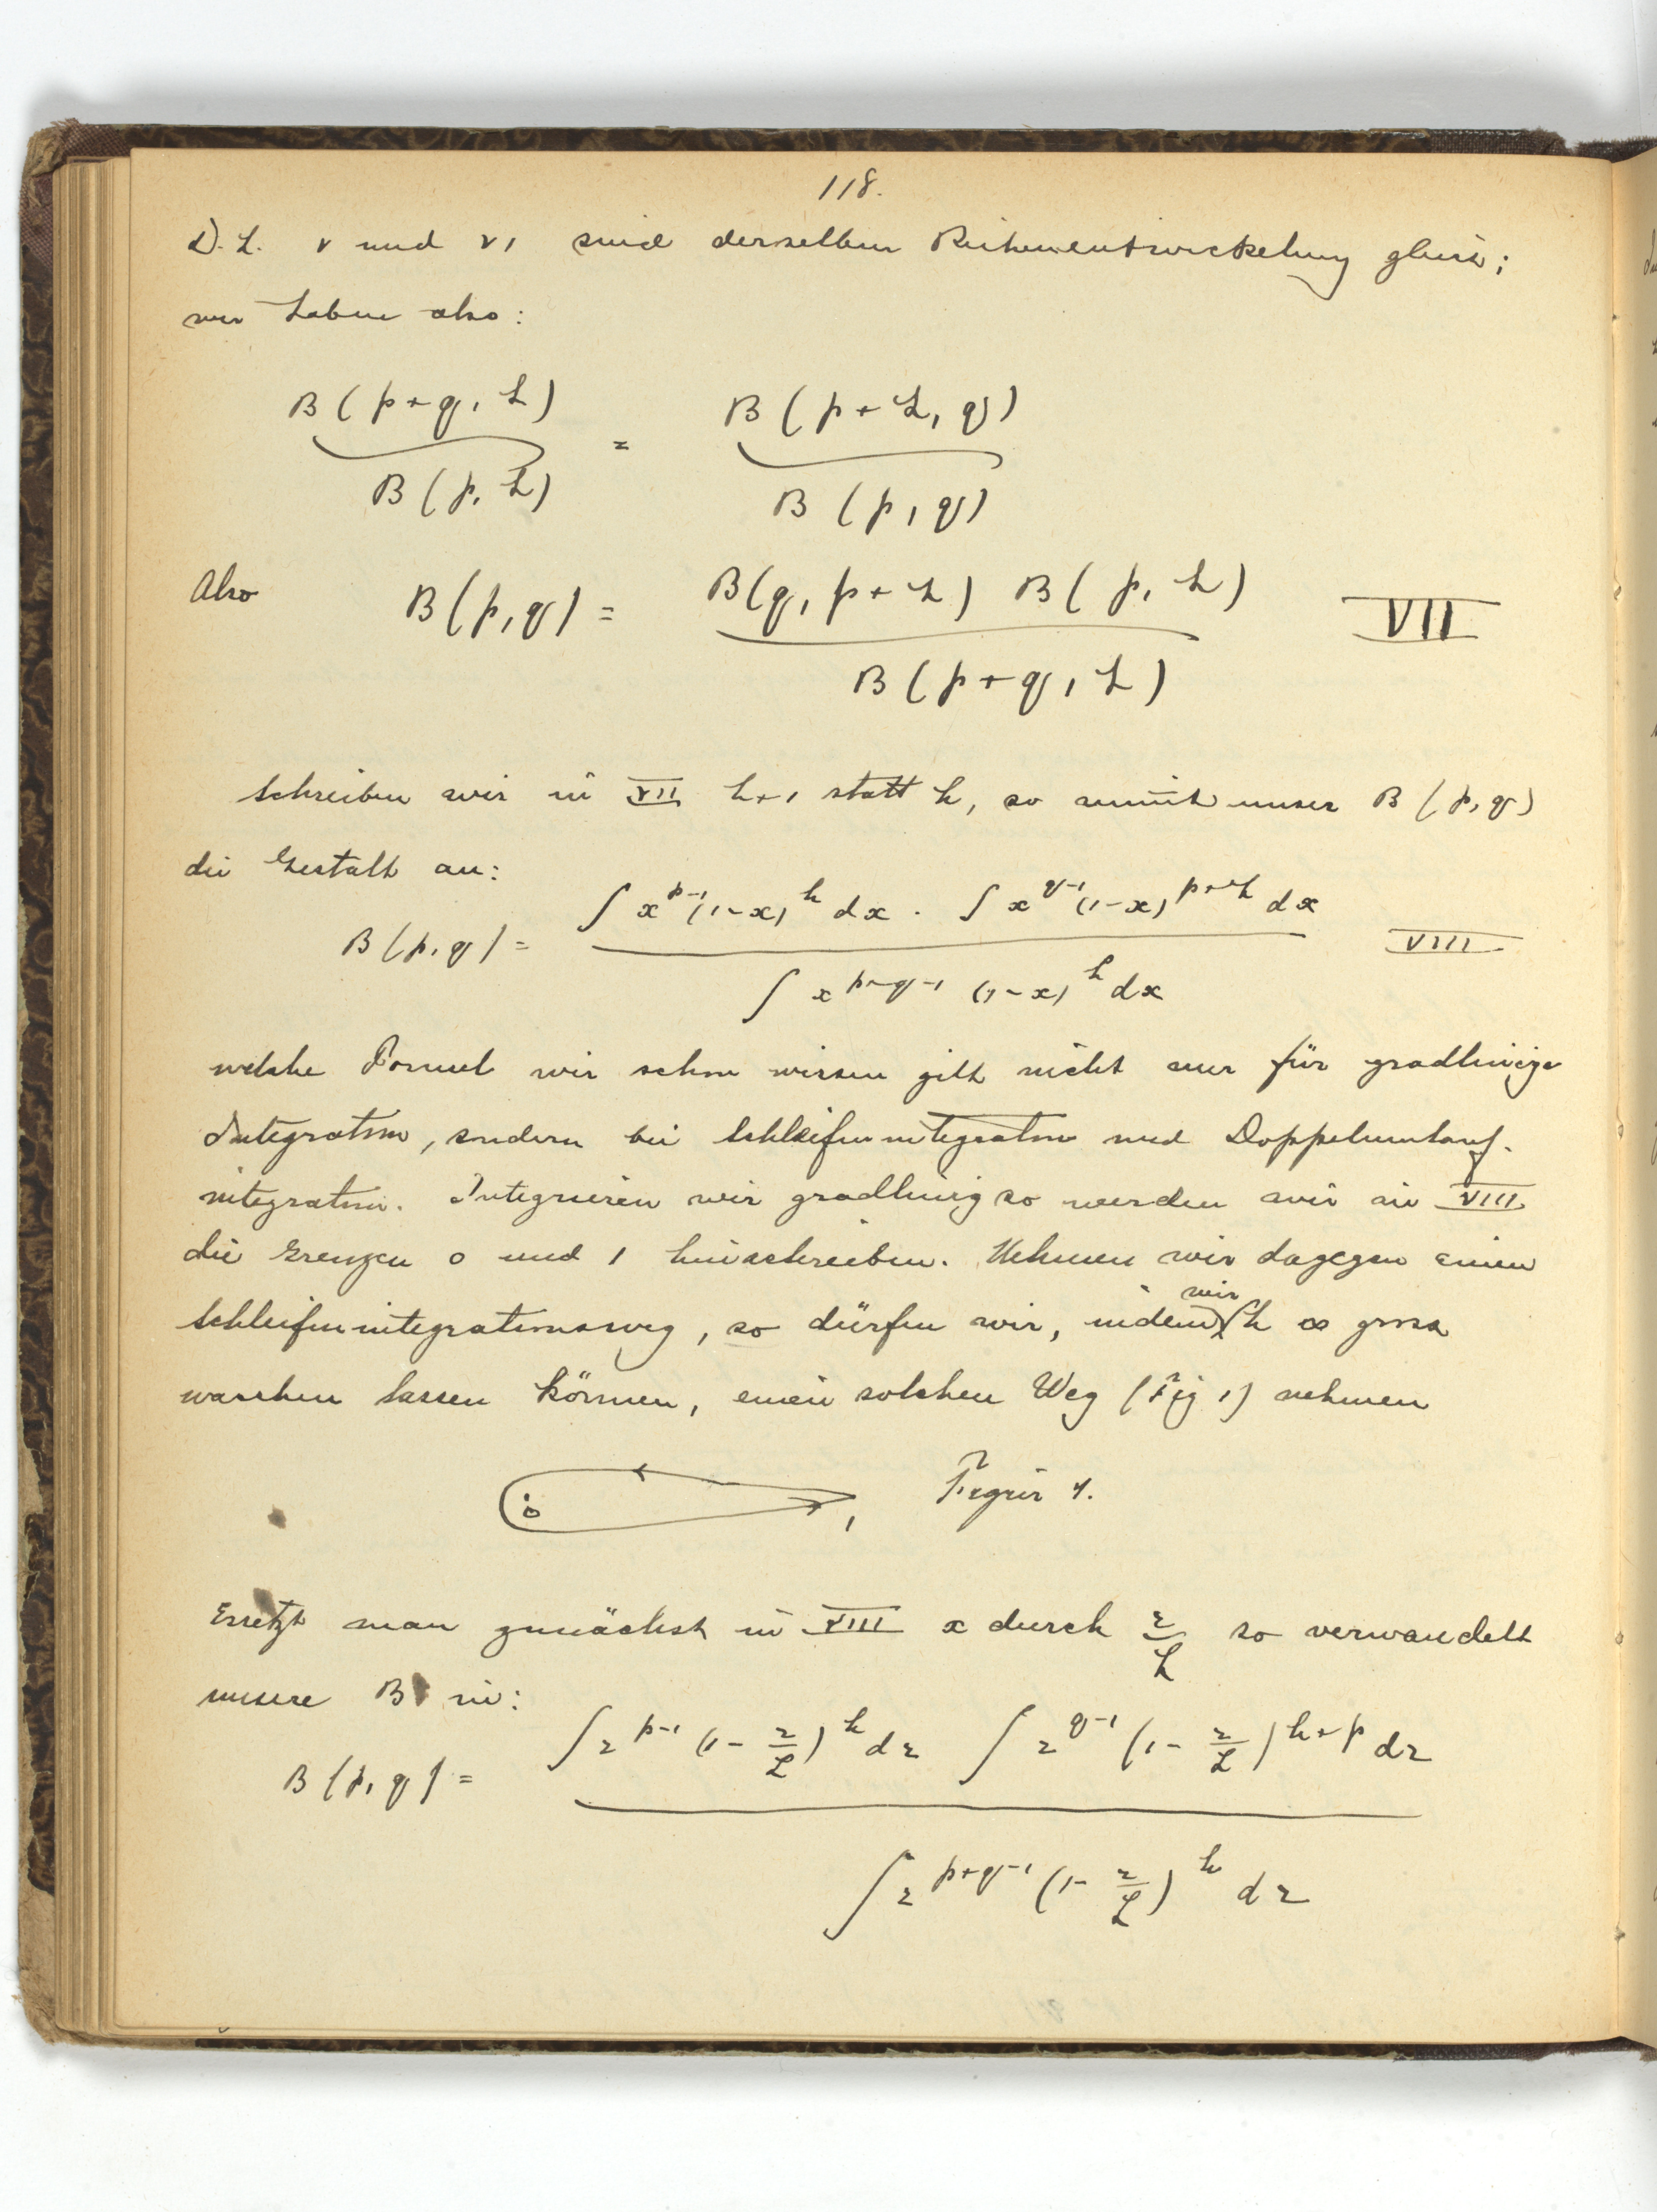 118.
D. h. V und VI sind derselben Reihenentwickelung gleich;
wir haben also:
B(p+q, h) / B(p, h) = B(p+h, q) / B(p, q)
Also B(p, q) = B(q, p+h) B(p, h) / B(p+q, h) VII
Schreiben wir in VII h+1 statt h, so nimmt unser B(p, q)
die Gestalt an:
B(p, q) = ∫ x^{p-1} (1-x)^h dx · ∫ x^{q-1} (1-x)^{p+h} dx / ∫ x^{p+q-1} (1-x)^h dx VIII
welche Formel wir schon wissen gilt nicht nur für gradlinige
Integration, sondern bei Schleifenintegration und Doppelumlauf-
integration. Integrieren wir gradlinig so werden wir in VIII
die Grenzen 0 und 1 hinschreiben. Nehmen wir dagegen einen
Schleifenintegrationsweg, so dürfen wir, indem wir h ∞ gross
wachsen lassen können, einen solchen Weg (Fig 1) nehmen
0 1 Figur 1.
Ersetzt man zunächst in VIII x durch z/h so verwandelt
unsere B in:
B(p, q) = ∫ z^{p-1} (1 - z/h)^h dz ∫ z^{q-1} (1 - z/h)^{h+p} dz / ∫ z^{p+q-1} (1 - z/h)^h dz